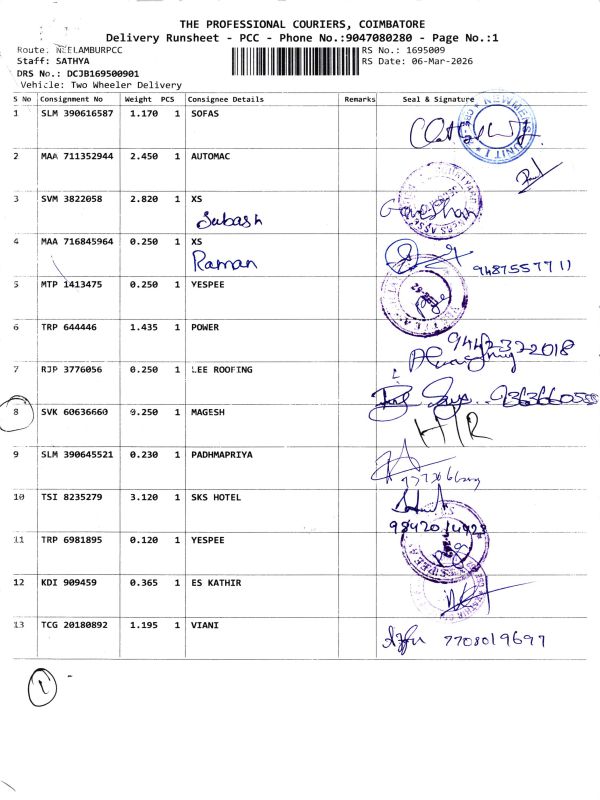 THE PROFESSIONAL COURIERS, COIMBATORE
Delivery Runsheet - PCC - Phone No.:9047080280 - Page No.:1
Route. NEELAMBURPCC RS No.: 1695009
Staff: SATHYA RS Date: 06-Mar-2026
DRS No.: DCJB169500901
Vehicle: Two Wheeler Delivery
S No Consignment No Weight PCS Consignee Details Remarks Seal & Signature
1 SLM 390616587 1.170 1 SOFAS
2 MAA 711352944 2.450 1 AUTOMAC
3 SVM 3822058 2.820 1 XS
Subash Ganeshan
4 MAA 716845964 0.250 1 XS
Raman 9487557711
5 MTP 1413475 0.250 1 YESPEE
6 TRP 644446 1.435 1 POWER 9442322018
7 RJP 3776056 0.250 1 LEE ROOFING
8 SVK 60636660 9.250 1 MAGESH H/R
9 SLM 390645521 0.230 1 PADHMAPRIYA
10 TSI 8235279 3.120 1 SKS HOTEL
11 TRP 6981895 0.120 1 YESPEE
12 KDI 909459 0.365 1 ES KATHIR
13 TCG 20180892 1.195 1 VIANI 7708019697
1